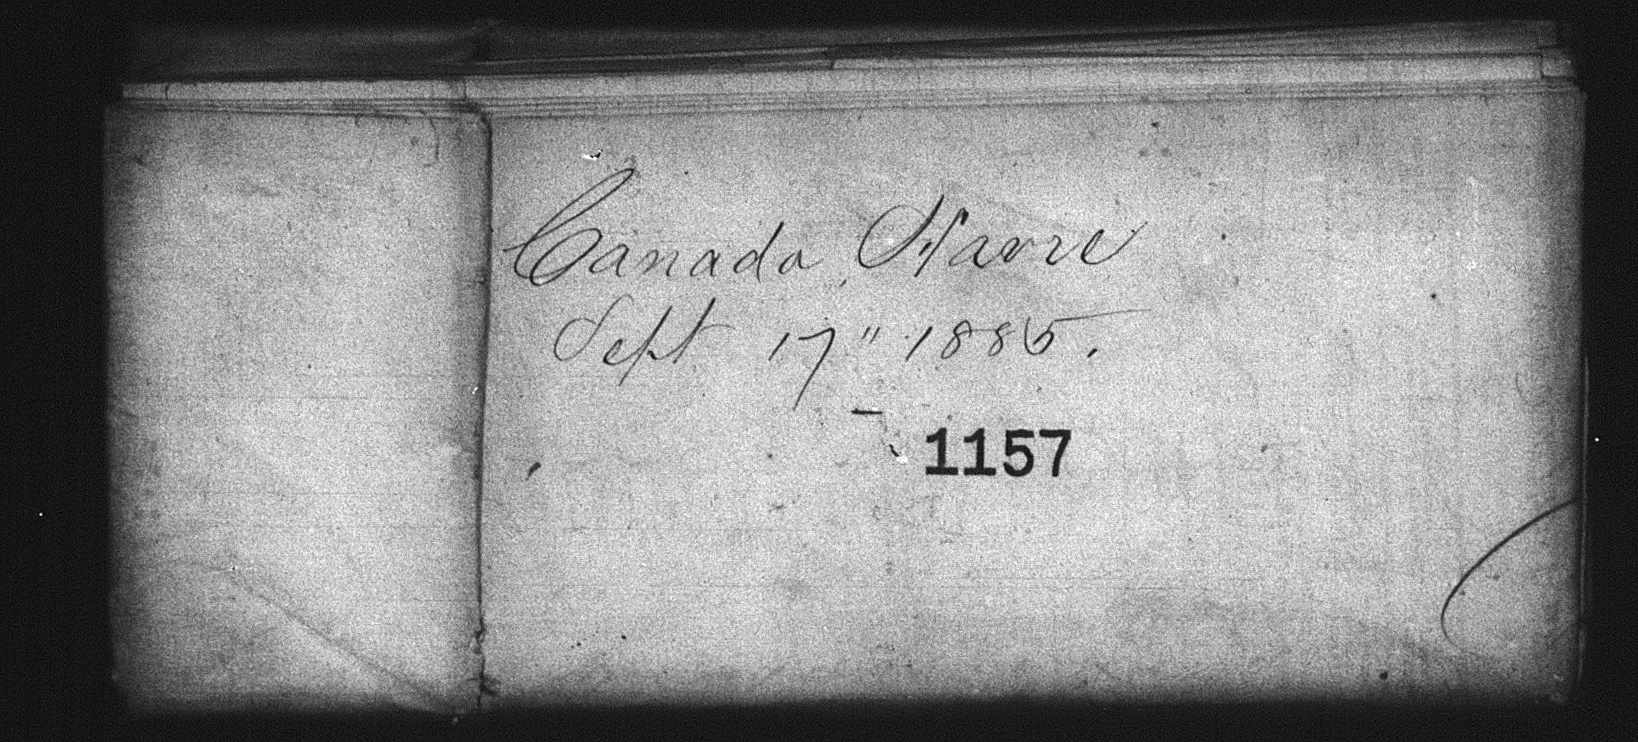 Canada, Havre
Sept 17" 1885.
1157